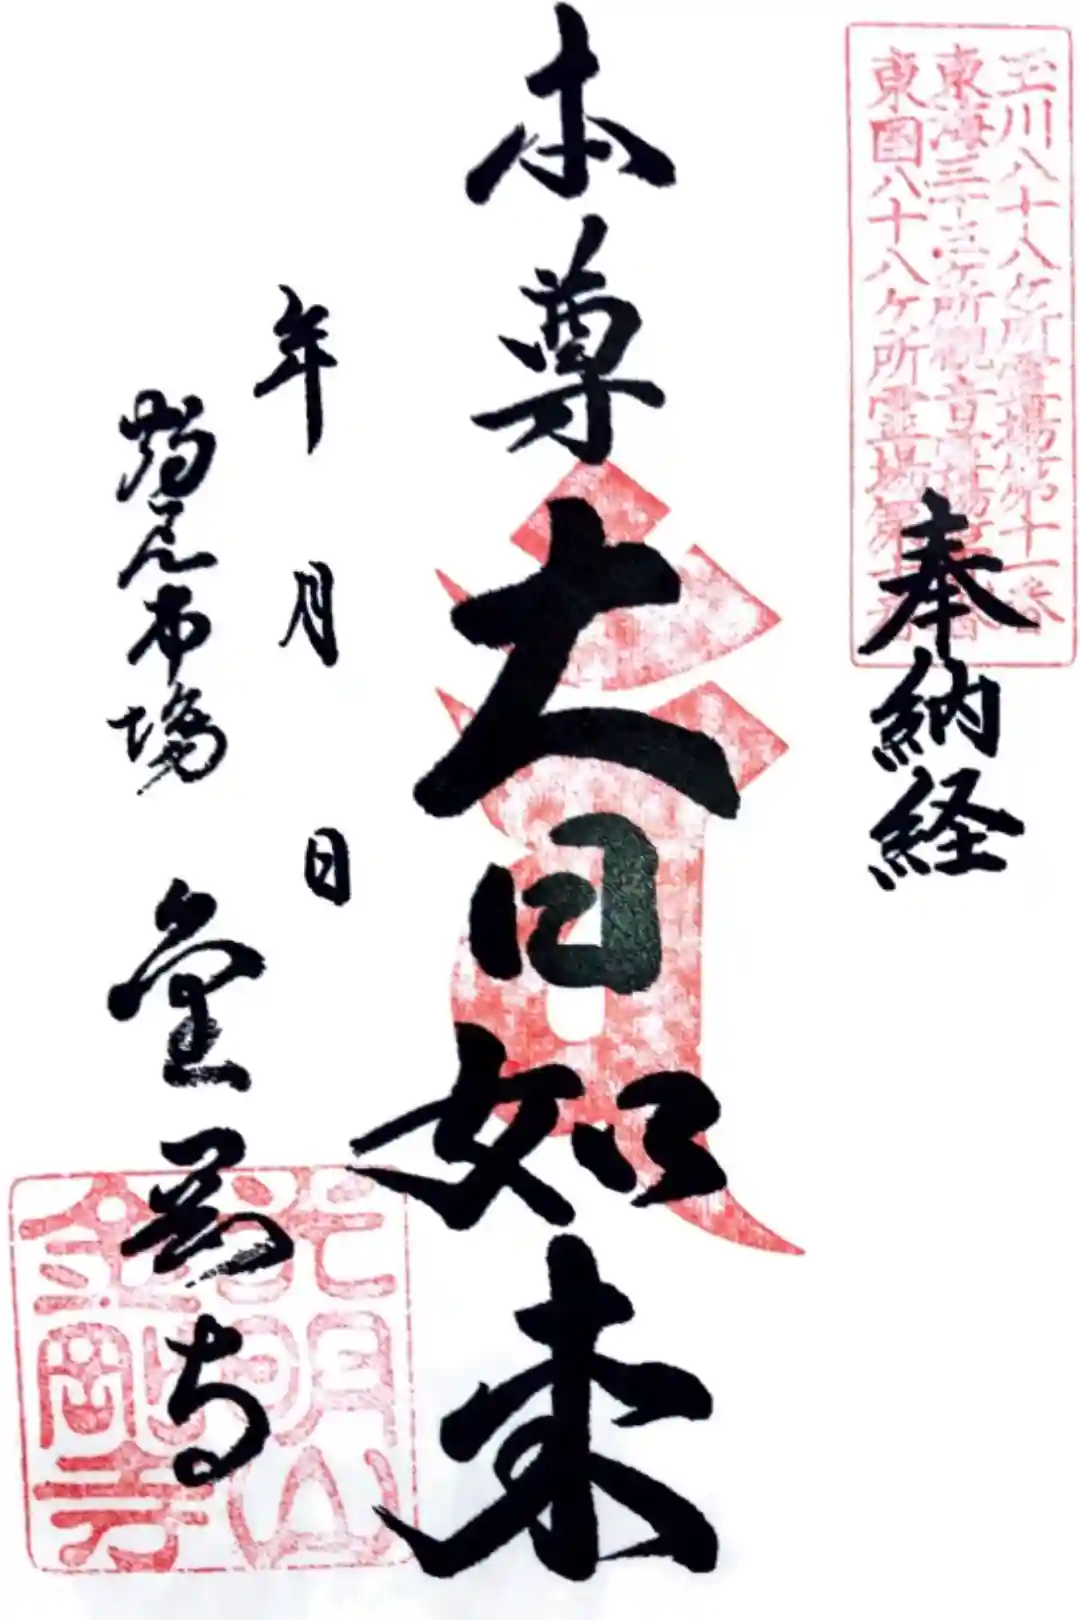 玉川八十八ケ所霊場第十一番
東海三十三ケ所観音霊場
東国八十八ケ所霊場第
奉納経
本尊大日如来
年月日
鶴見市場金剛寺
光明山
金剛寺